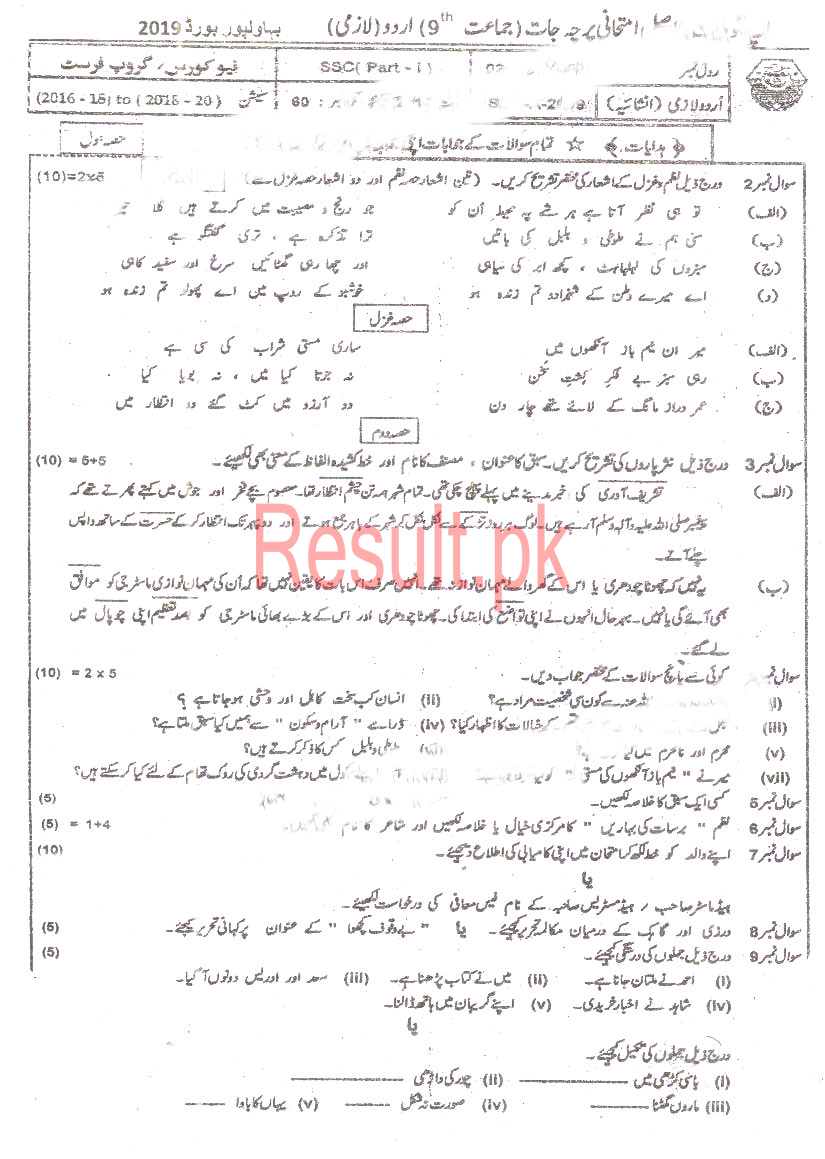 امتحانی پرچہ جات (جماعت 9th) اردو (لازمی) بہاولپور بورڈ 2019
رول نمبر SSC (Part - I) نیو کورس، گروپ فرسٹ
اردو لازمی (انشائیہ) 60 سیشن (2016 - 18) to (2018 - 20)
﴿ ہدایات ﴾ ☆ تمام سوالات کے جوابات حصہ اول
سوال نمبر 2 درج ذیل نظم و غزل کے اشعار کی مختصر تشریح کریں۔ (تین اشعار حصہ نظم اور دو اشعار حصہ غزل سے) (10)=2x5
(الف) تو ہی نظر آتا ہے ہر شے پہ محیط اُن کو جو رنج و مصیبت میں کرتے ہیں گلا تیرا
(ب) سنی ہم نے طوطی و بلبل کی باتیں ترا تذکرہ ہے ، تری گفتگو ہے
(ج) سبزوں کی لہلہاہٹ ، کچھ ابر کی سیاہی اور چھا رہی گھٹائیں سرخ اور سفید کاہی
(د) اے میرے وطن کے شہزادو تم زندہ ہو خوشبو کے روپ میں اے پھولو تم زندہ ہو
حصہ غزل
(الف) میر ان نیم باز آنکھوں میں ساری مستی شراب کی سی ہے
(ب) رہی سبز بے فکر کِشتِ سخن نہ جوتا کیا میں ، نہ بویا کیا
(ج) عمر دراز مانگ کے لائے تھے چار دن دو آرزو میں کٹ گئے دو انتظار میں
حصہ دوم
سوال نمبر 3 درج ذیل نثر پاروں کی تشریح کریں۔ سبق کا عنوان ، مصنف کا نام اور خط کشیدہ الفاظ کے معنی بھی لکھیئے۔ (10) = 5+5
(الف) تشریف آوری کی خبر مدینے میں پہلے پہنچ چکی تھی۔ تمام شہر ہمہ تن چشمِ انتظار تھا۔ معصوم بچے فخر اور جوش میں کہتے پھرتے تھے کہ
پیغمبر صلی اللہ علیہ وآلہ وسلم آ رہے ہیں۔ لوگ ہر روز تڑکے سے نکل نکل کر شہر کے باہر جمع ہوتے اور دوپہر تک انتظار کر کے حسرت کے ساتھ واپس
چلے آتے۔
(ب) یہ نہیں کہ چھوٹا چودھری یا اس کے گھر والے مہمان نواز نہ تھے۔ انہیں صرف اس بات کا یقین نہیں تھا کہ اُن کی مہمان نوازی ماسٹر جی کو موافق
بھی آئے گی یا نہیں۔ بہر حال انہوں نے اپنی تواضع کی ابتدا کی۔ چھوٹا چودھری اور اس کے بڑے بھائی ماسٹر جی کو بعد تعظیم اپنی چوپال میں
لے گئے۔
Result.pk
سوال نمبر کوئی سے پانچ سوالات کے مختصر جواب دیں۔ (10) = 2 x 5
(i) سے کون سی شخصیت مراد ہے؟ (ii) انسان کب سخت کاہل اور وحشی ہو جاتا ہے ؟
(iii) کر خیالات کا اظہار کیا؟ (iv) ڈرامے " آرام و سکون " سے ہمیں کیا سبق ملتا ہے؟
(v) محرم اور نامحرم بلبل کس کا ذکر کرتے ہیں؟
(vii) میر نے " نیم باز آنکھوں کی مستی " میں دہشت گردی کی روک تھام کے لئے کیا کر سکتے ہیں؟
سوال نمبر 5 کسی ایک سبق کا خلاصہ لکھیں۔ (5)
سوال نمبر 6 نظم " برسات کی بہاریں " کا مرکزی خیال یا خلاصہ لکھیں اور شاعر کا نام (5) = 1+4
سوال نمبر 7 اپنے والد کو خط لکھ کر امتحان میں اپنی کامیابی کی اطلاع دیجیئے۔ (10)
یا
ہیڈ ماسٹر صاحب / ہیڈ مسٹریس صاحبہ کے نام فیس معافی کی درخواست لکھیئے۔
سوال نمبر 8 درزی اور گاہک کے درمیان مکالمہ تحریر کیجیئے۔ یا " بے وقوف کچھوا " کے عنوان پر کہانی تحریر کیجیئے۔ (5)
سوال نمبر 9 درج ذیل جملوں کی درستگی کیجیئے۔ (5)
(i) احمد نے ملتان جانا ہے۔ (ii) میں نے کتاب پڑھنا ہے۔ (iii) سعد اور ادریس دونوں آ گیا۔
(iv) شاہد نے اخبار خریدی۔ (v) اپنے گریبان میں ہاتھ ڈالنا۔
یا
درج ذیل جملوں کی تکمیل کیجیئے۔
(i) باسی کڑھی میں ________ (ii) چور کی داڑھی ________
(iii) ماروں گھٹنا ________ (iv) صورت نہ شکل ________ (v) یہاں کا باوا ________